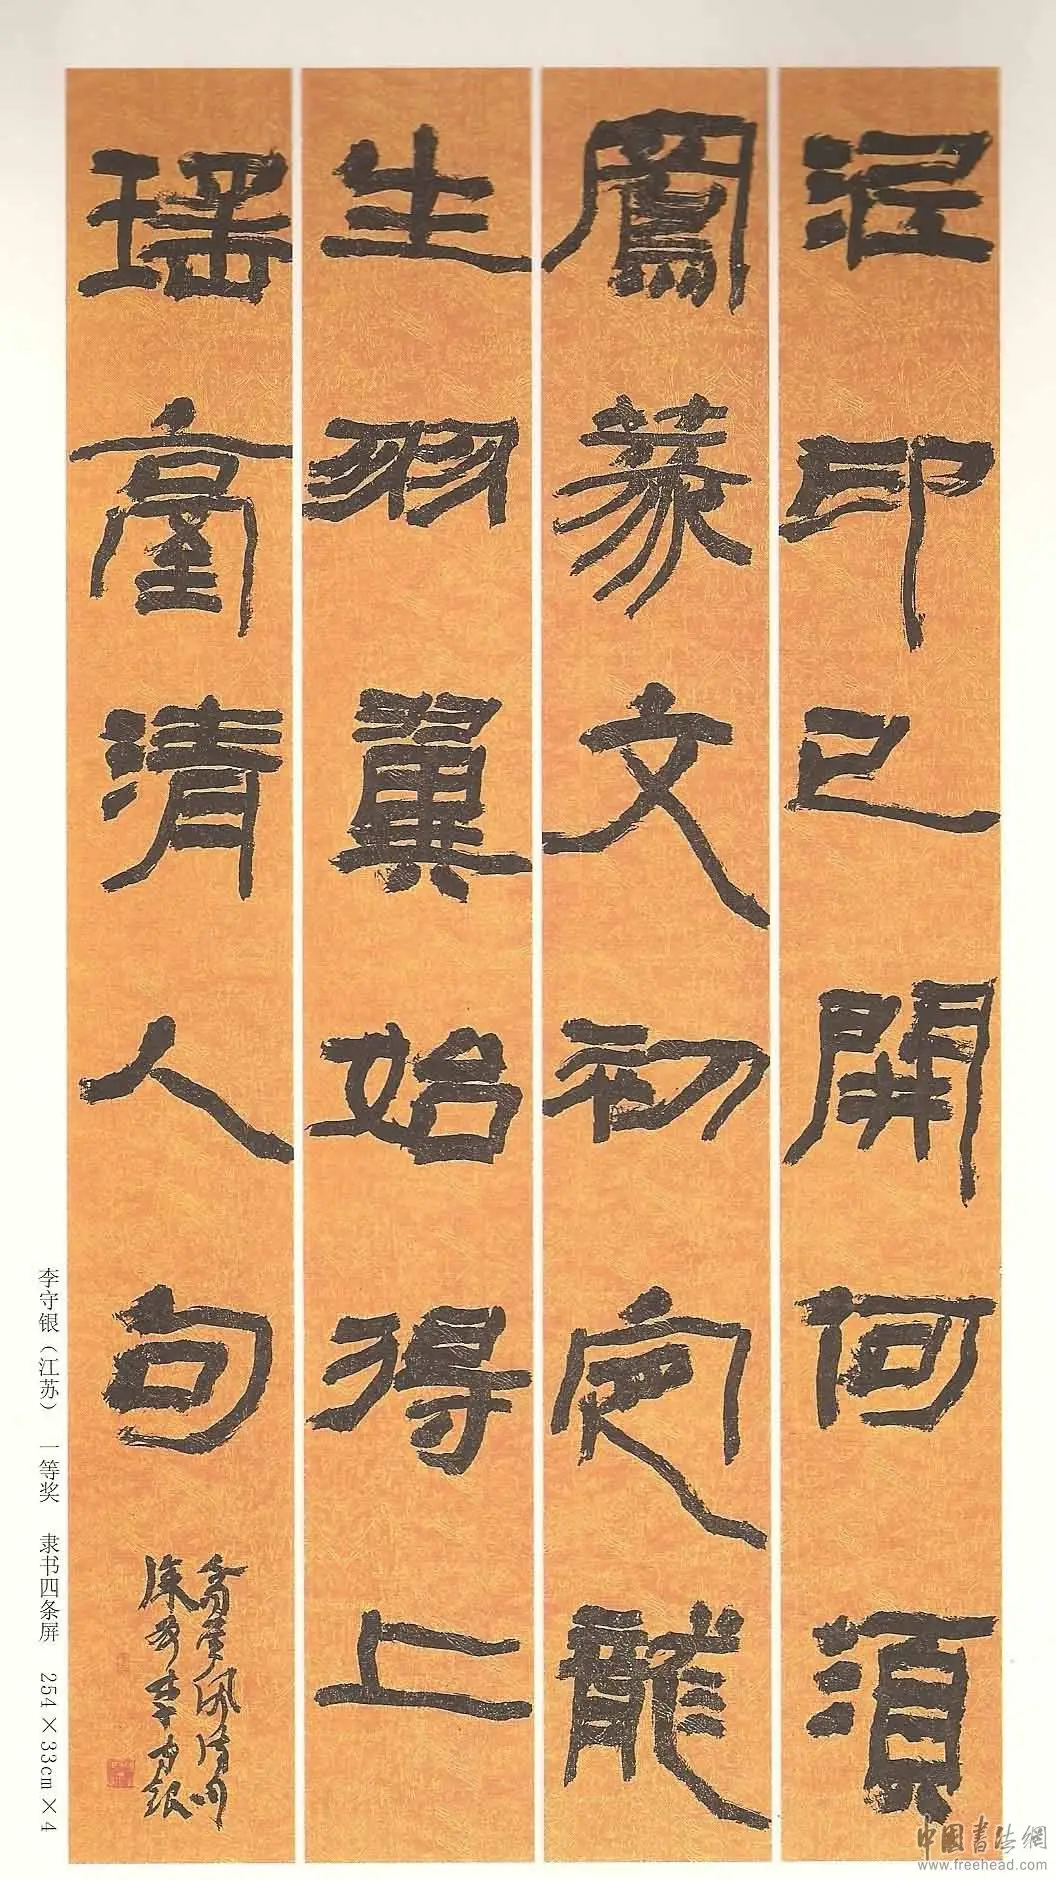 泥印已開何須
鳳篆文初定龍
生羽翼始得上
瑤臺清人句
李守银
李守银（江苏） 一等奖 隶书四条屏 254×33cm×4
中國書法網
www.freehead.com